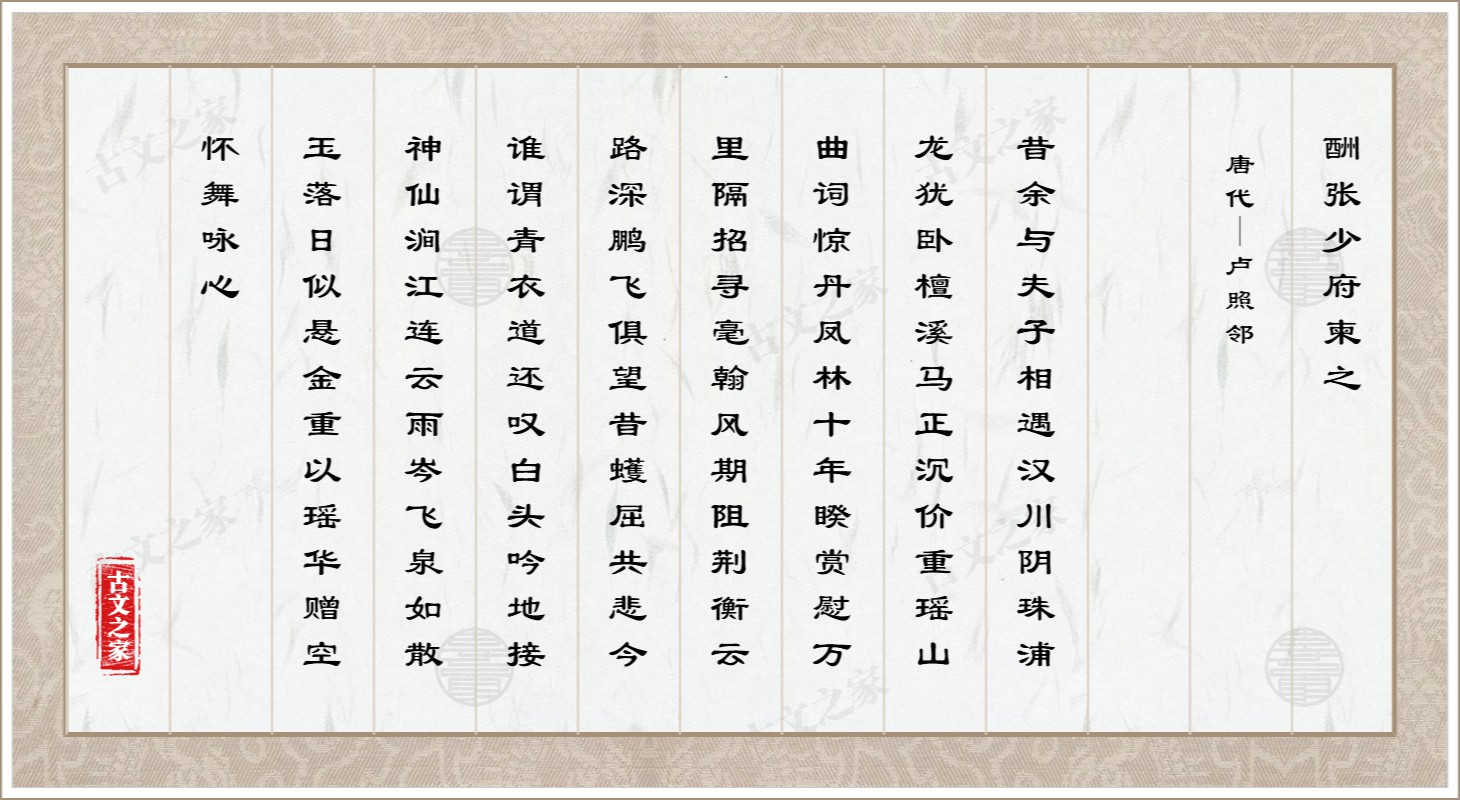 酬张少府柬之
唐代—卢照邻
昔余与夫子相遇汉川阴珠浦
龙犹卧檀溪马正沉价重瑶山
曲词惊丹凤林十年睽赏慰万
里隔招寻毫翰风期阻荆衡云
路深鹏飞俱望昔蠖屈共悲今
谁谓青衣道还叹白头吟地接
神仙涧江连云雨岑飞泉如散
玉落日似悬金重以瑶华赠空
怀舞咏心
古文之家
古文之家
古文之家
古文之家
古文之家
古文之家
古文之家